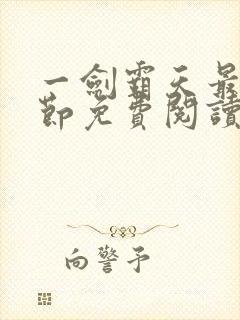 一劍霸天最
節免費閱讀
向警予